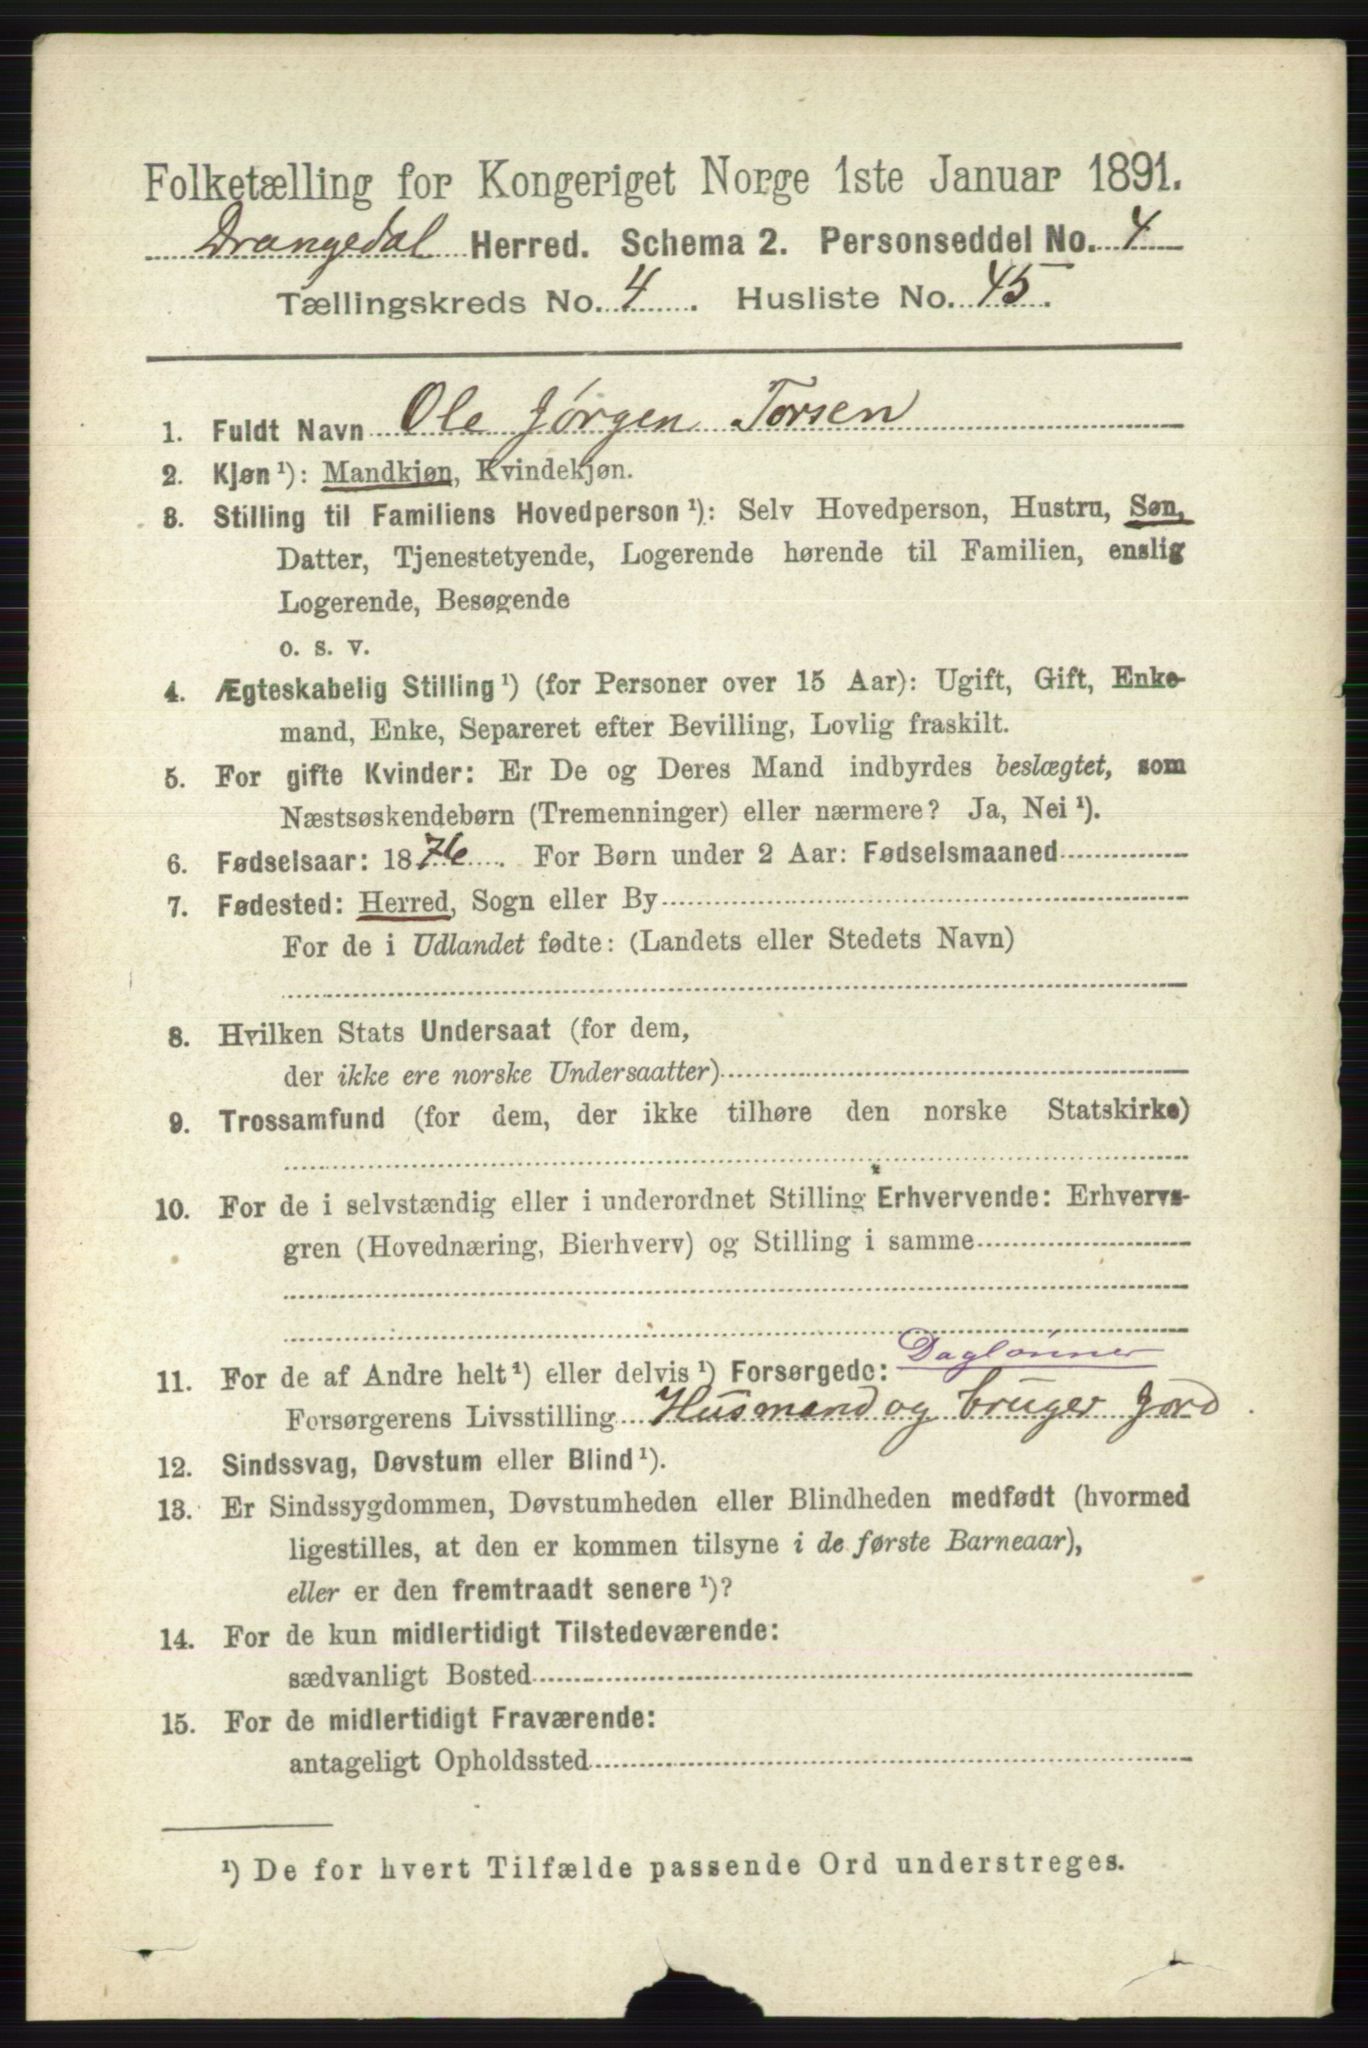 Folketælling for Kongeriget Norge 1ste Januar 1891.
Drangedal Herred. Schema 2. Personseddel No. 4
Tællingskreds No. 4. Husliste No. 45.
1. Fuldt Navn Ole Jørgen Torsen
2. Kjøn ¹): Mandkjøn, Kvindekjøn.
3. Stilling til Familiens Hovedperson ¹): Selv Hovedperson, Hustru, Søn,
Datter, Tjenestetyende, Logerende hørende til Familien, enslig
Logerende, Besøgende
o. s. v.
4. Ægteskabelig Stilling ¹) (for Personer over 15 Aar): Ugift, Gift, Enke-
mand, Enke, Separeret efter Bevilling, Lovlig fraskilt.
5. For gifte Kvinder: Er De og Deres Mand indbyrdes beslægtet, som
Næstsøskendebørn (Tremenninger) eller nærmere? Ja, Nei ¹).
6. Fødselsaar: 1876. For Børn under 2 Aar: Fødselsmaaned
7. Fødested: Herred, Sogn eller By
For de i Udlandet fødte: (Landets eller Stedets Navn)
8. Hvilken Stats Undersaat (for dem,
der ikke ere norske Undersaatter)
9. Trossamfund (for dem, der ikke tilhøre den norske Statskirke)
10. For de i selvstændig eller i underordnet Stilling Erhvervende: Erhvervs-
gren (Hovednæring, Bierhverv) og Stilling i samme
Daglønner
11. For de af Andre helt ¹) eller delvis ¹) Forsørgede:
Forsørgerens Livsstilling Husmand og bruger Jord
12. Sindssvag, Døvstum eller Blind ¹).
13. Er Sindssygdommen, Døvstumheden eller Blindheden medfødt (hvormed
ligestilles, at den er kommen tilsyne i de første Barneaar),
eller er den fremtraadt senere ¹)?
14. For de kun midlertidigt Tilstedeværende:
sædvanligt Bosted
15. For de midlertidigt Fraværende:
antageligt Opholdssted
¹) De for hvert Tilfælde passende Ord understreges.